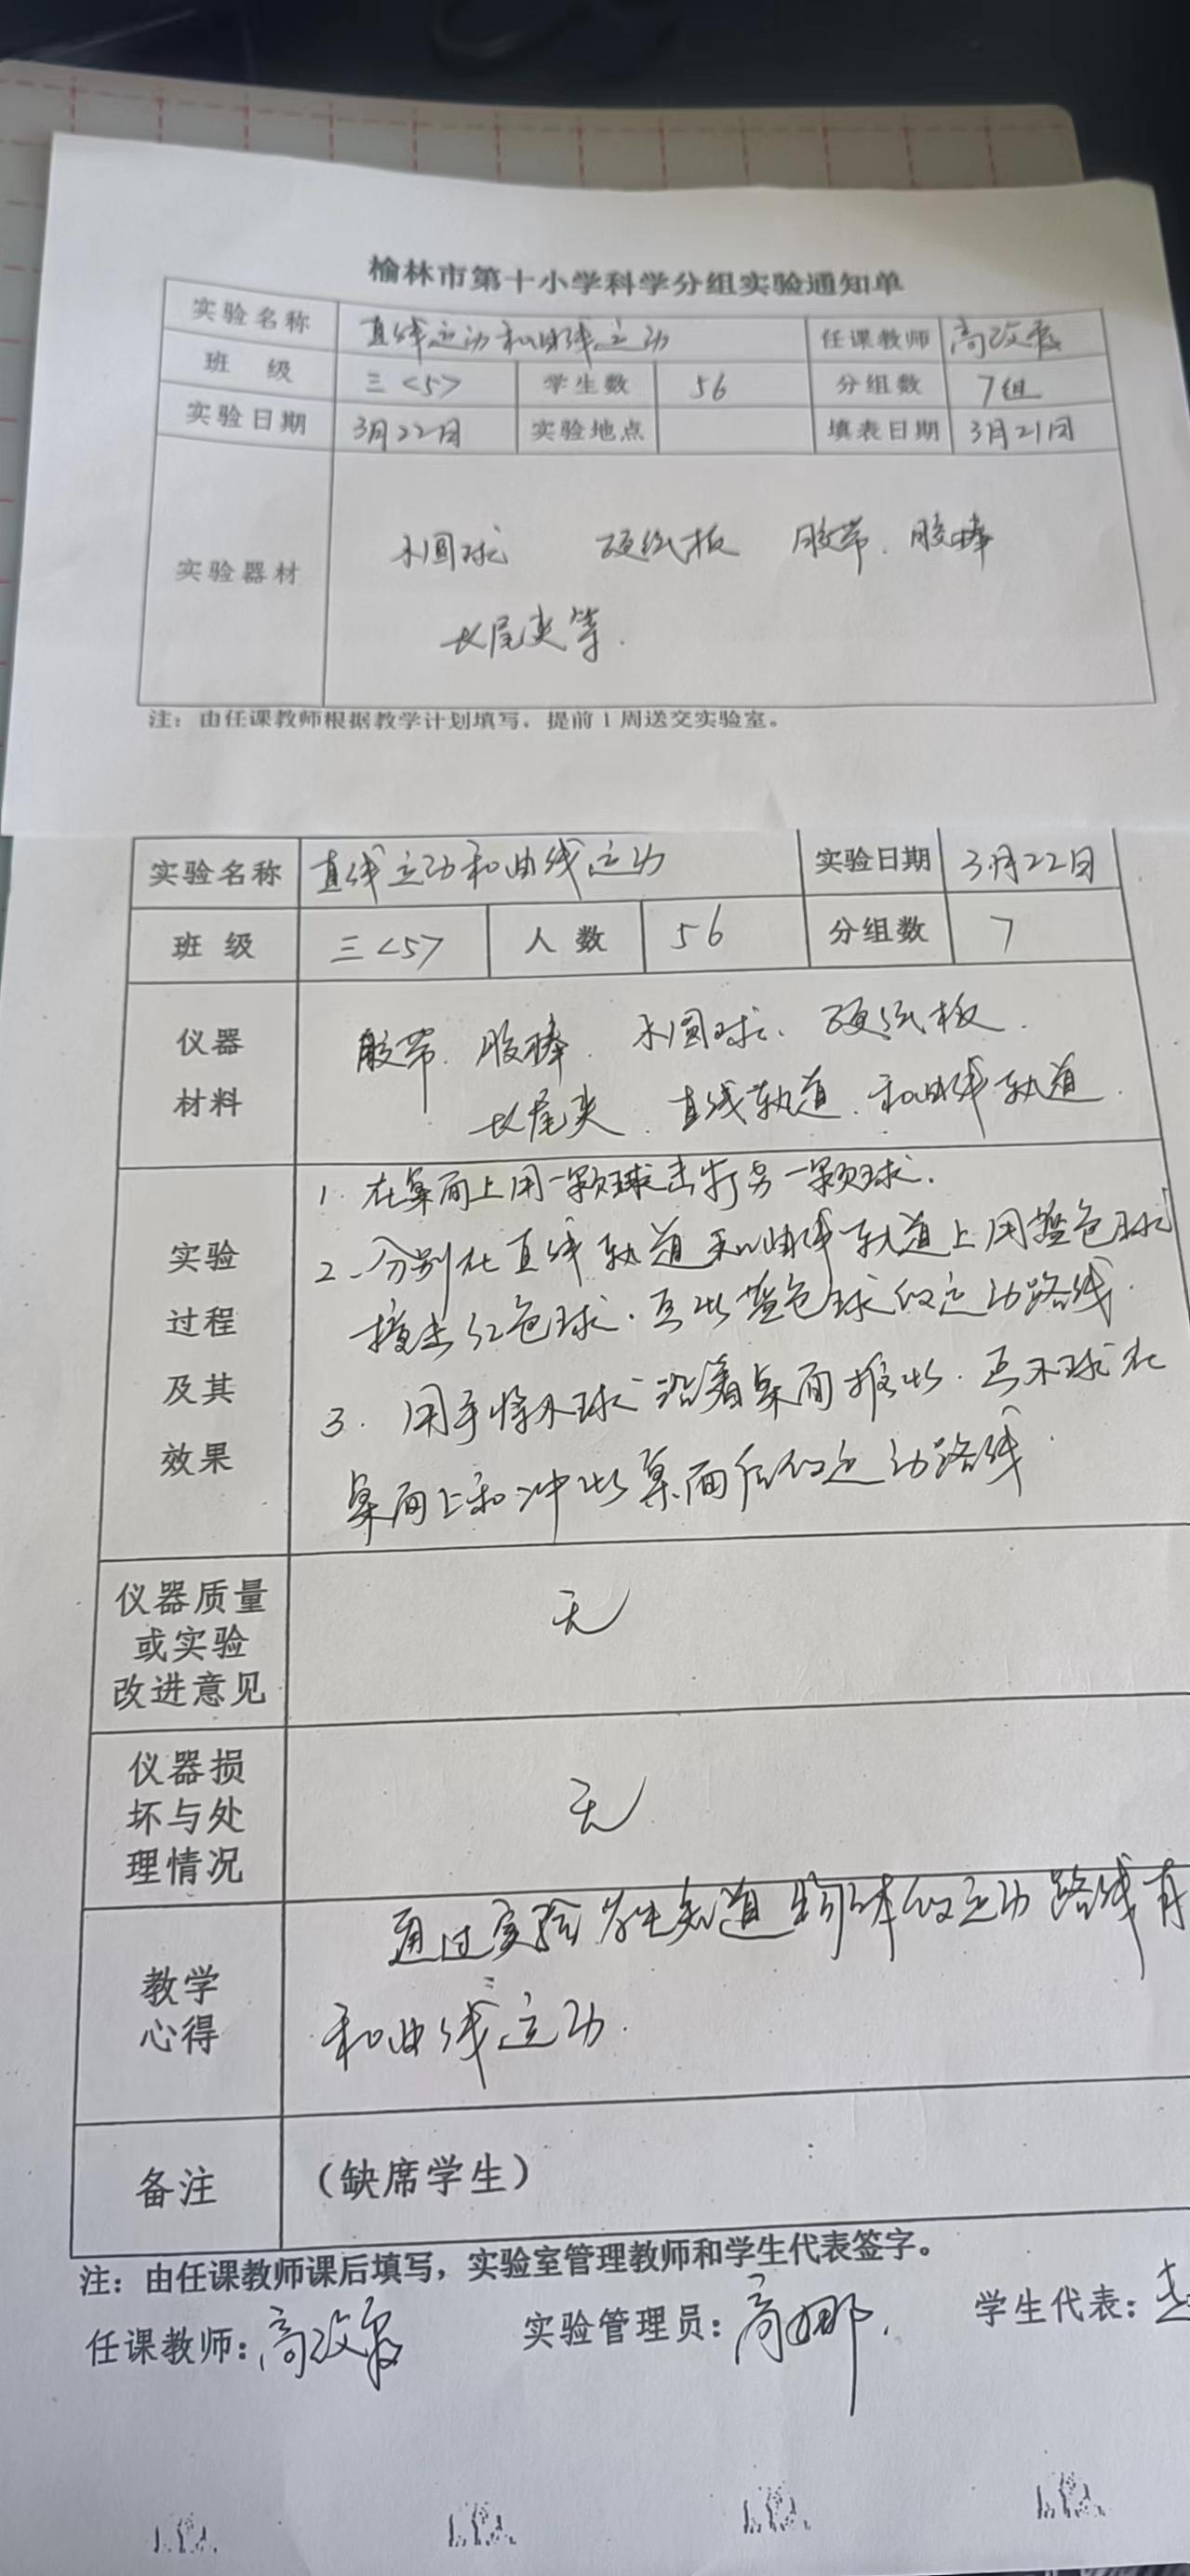 榆林市第十小学科学分组实验通知单
实验名称 直线运动和曲线运动 任课教师 高改
班 级 三<5> 学生数 56 分组数 7组
实验日期 3月22日 实验地点 填表日期 3月21日
实验器材 木圆球 硬纸板 胶带、胶棒
长尾夹等.
注：由任课教师根据教学计划填写，提前1周送交实验室。
实验名称 直线运动和曲线运动 实验日期 3月22日
班 级 三<5> 人 数 56 分组数 7
仪器 胶带、胶棒、木圆球、硬纸板.
材料 长尾夹、直线轨道、和曲线轨道.
实验
过程
及其
效果
1. 在桌面上用一颗球击打另一颗球.
2、分别在直线轨道和曲线轨道上用蓝色球
撞击红色球.画出蓝色球的运动路线.
3. 用手将木球沿着桌面推出.画木球在
桌面上和冲出桌面后的运动路线.
仪器质量
或实验
改进意见
无
仪器损
坏与处
理情况
无
教学
心得
通过实验学生知道物体的运动路线有
和曲线运动.
备注 （缺席学生）
注：由任课教师课后填写，实验室管理教师和学生代表签字。
任课教师：高改 实验管理员：高娜. 学生代表：